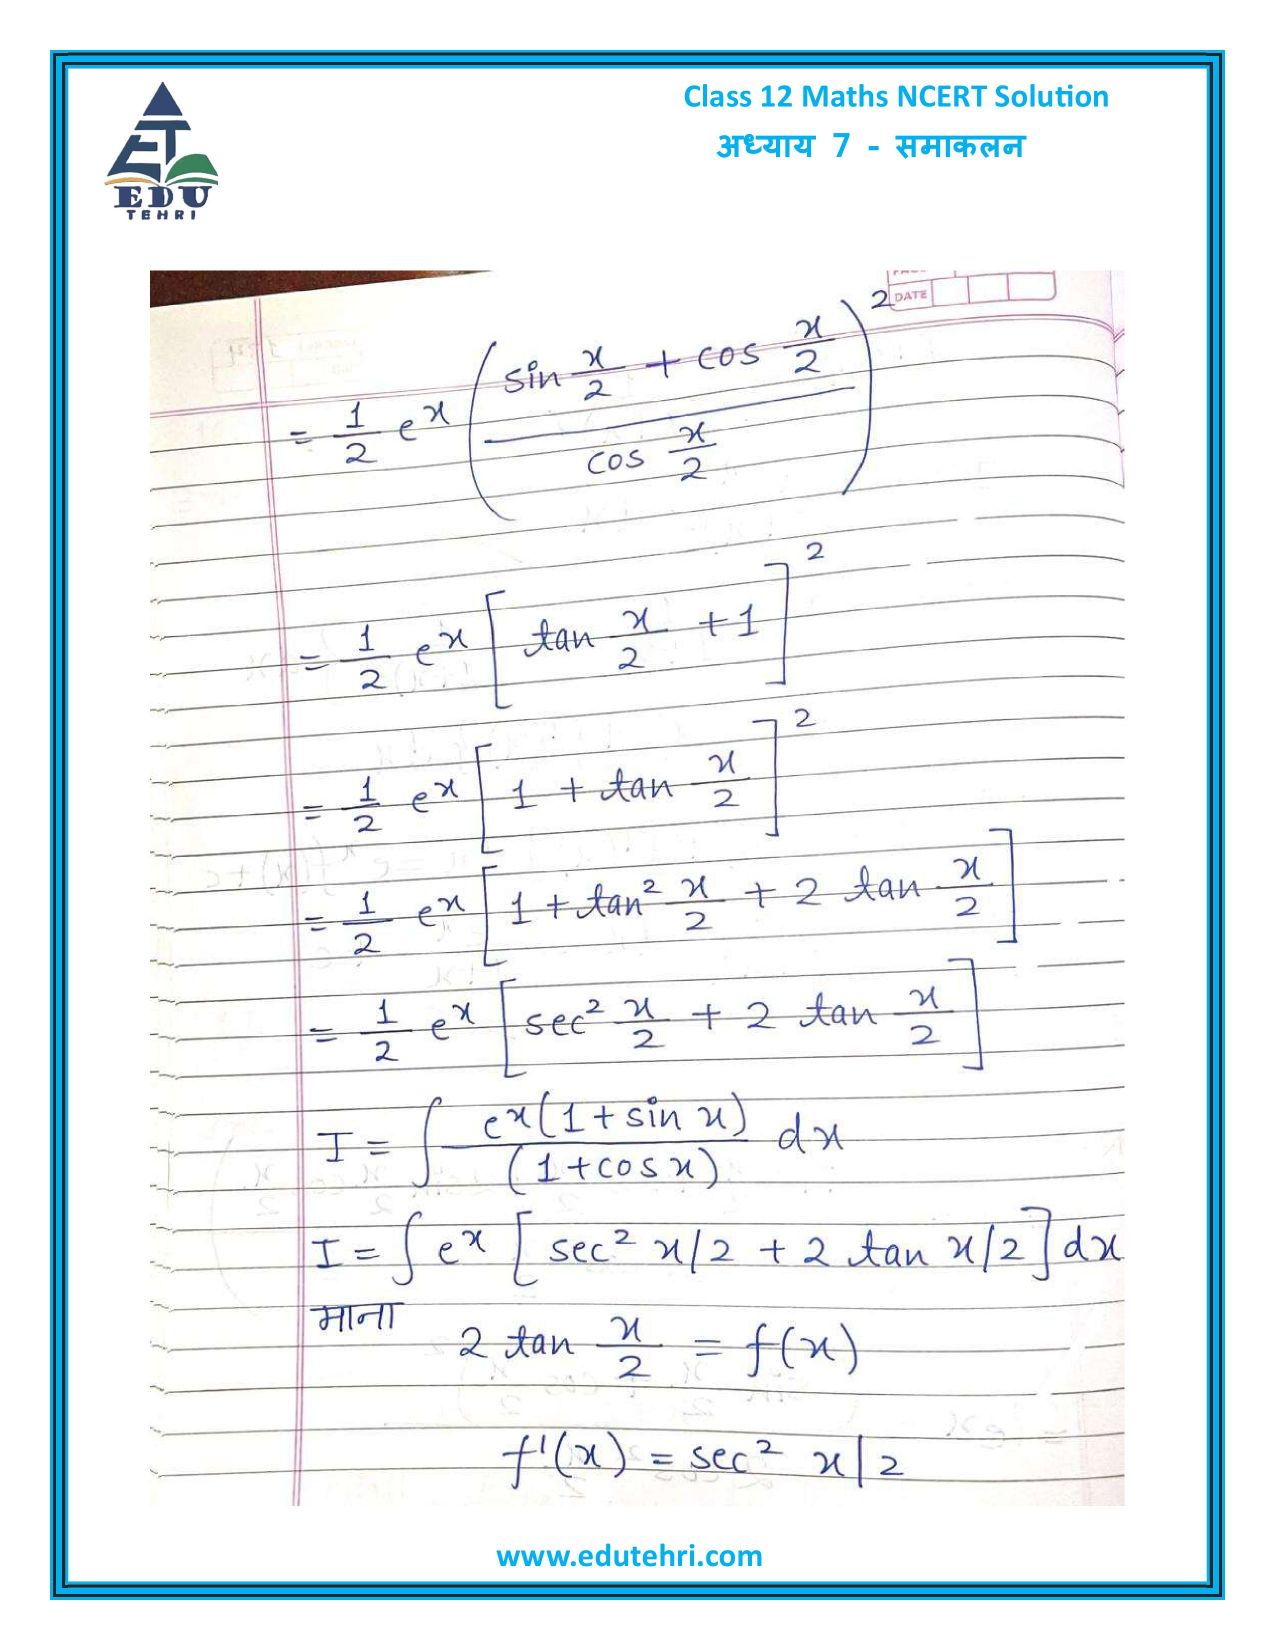 Class 12 Maths NCERT Solution
अध्याय 7 - समाकलन
EDU
TEHRI
DATE
= 1/2 e^x ( (sin x/2 + cos x/2) / (cos x/2) )^2
= 1/2 e^x [ tan x/2 + 1 ]^2
= 1/2 e^x [ 1 + tan x/2 ]^2
= 1/2 e^x [ 1 + tan^2 x/2 + 2 tan x/2 ]
= 1/2 e^x [ sec^2 x/2 + 2 tan x/2 ]
I = ∫ e^x(1 + sin x) / (1 + cos x) dx
I = ∫ e^x [ sec^2 x/2 + 2 tan x/2 ] dx
माना
2 tan x/2 = f(x)
f'(x) = sec^2 x/2
www.edutehri.com